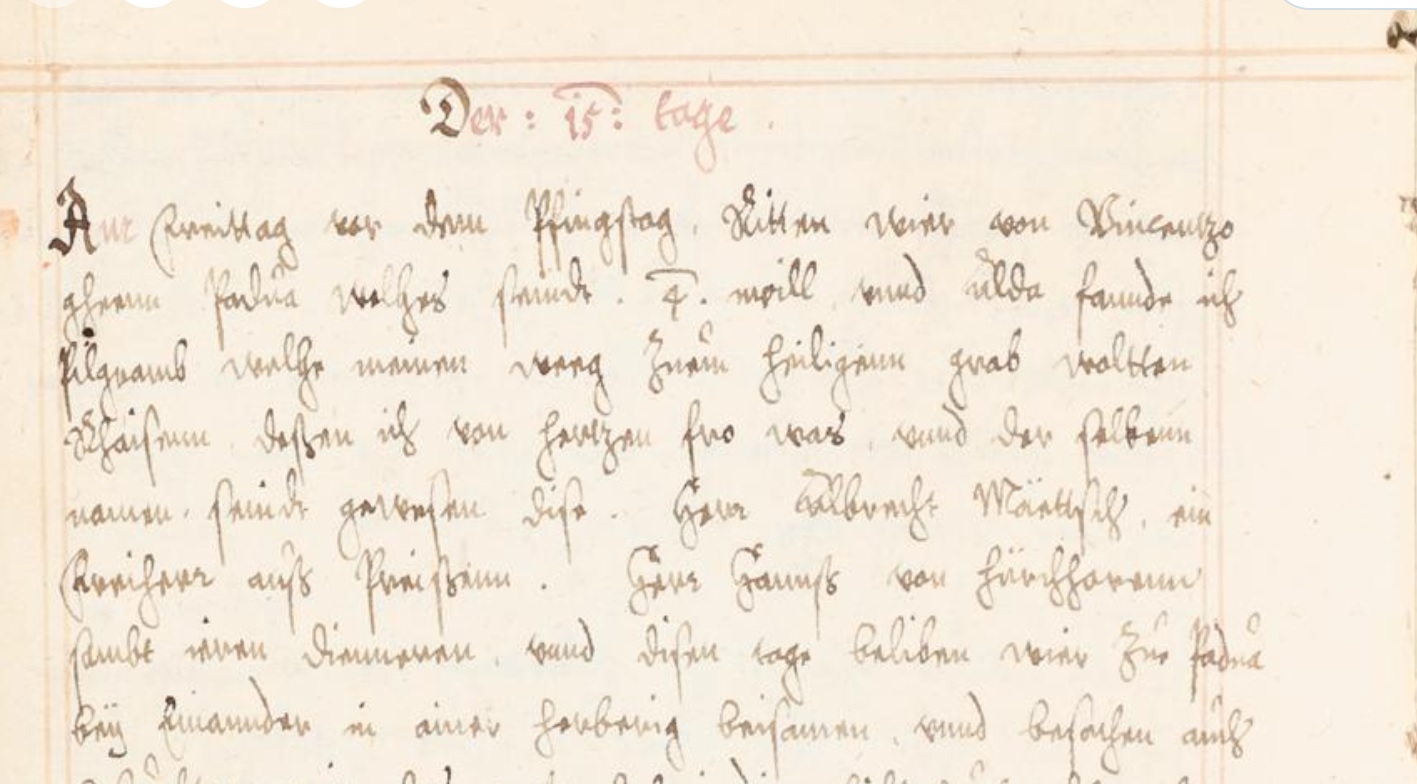 Der : 15 : tage .
Am Freittag vor dem Pfingstag . Ritten wier von Vincentzo
ghenn Padua welhes seindt . 4 . meill vnnd allda fannde ich
Pilgramb welhe meinen weeg Zuem heiligenn grab woltten
Rhaisenn . deßen ich von hertzen fro was . vnnd der selbenn
namen . seindt gewesen dise . Herr Albrecht ein
Freiherr auß Preissenn . Herr Hannß von
sambt iren dienneren . vnnd disen tage beliben wier Zue Padua
bey Einannder in ainer herberig beisamen . vnnd besachen auch